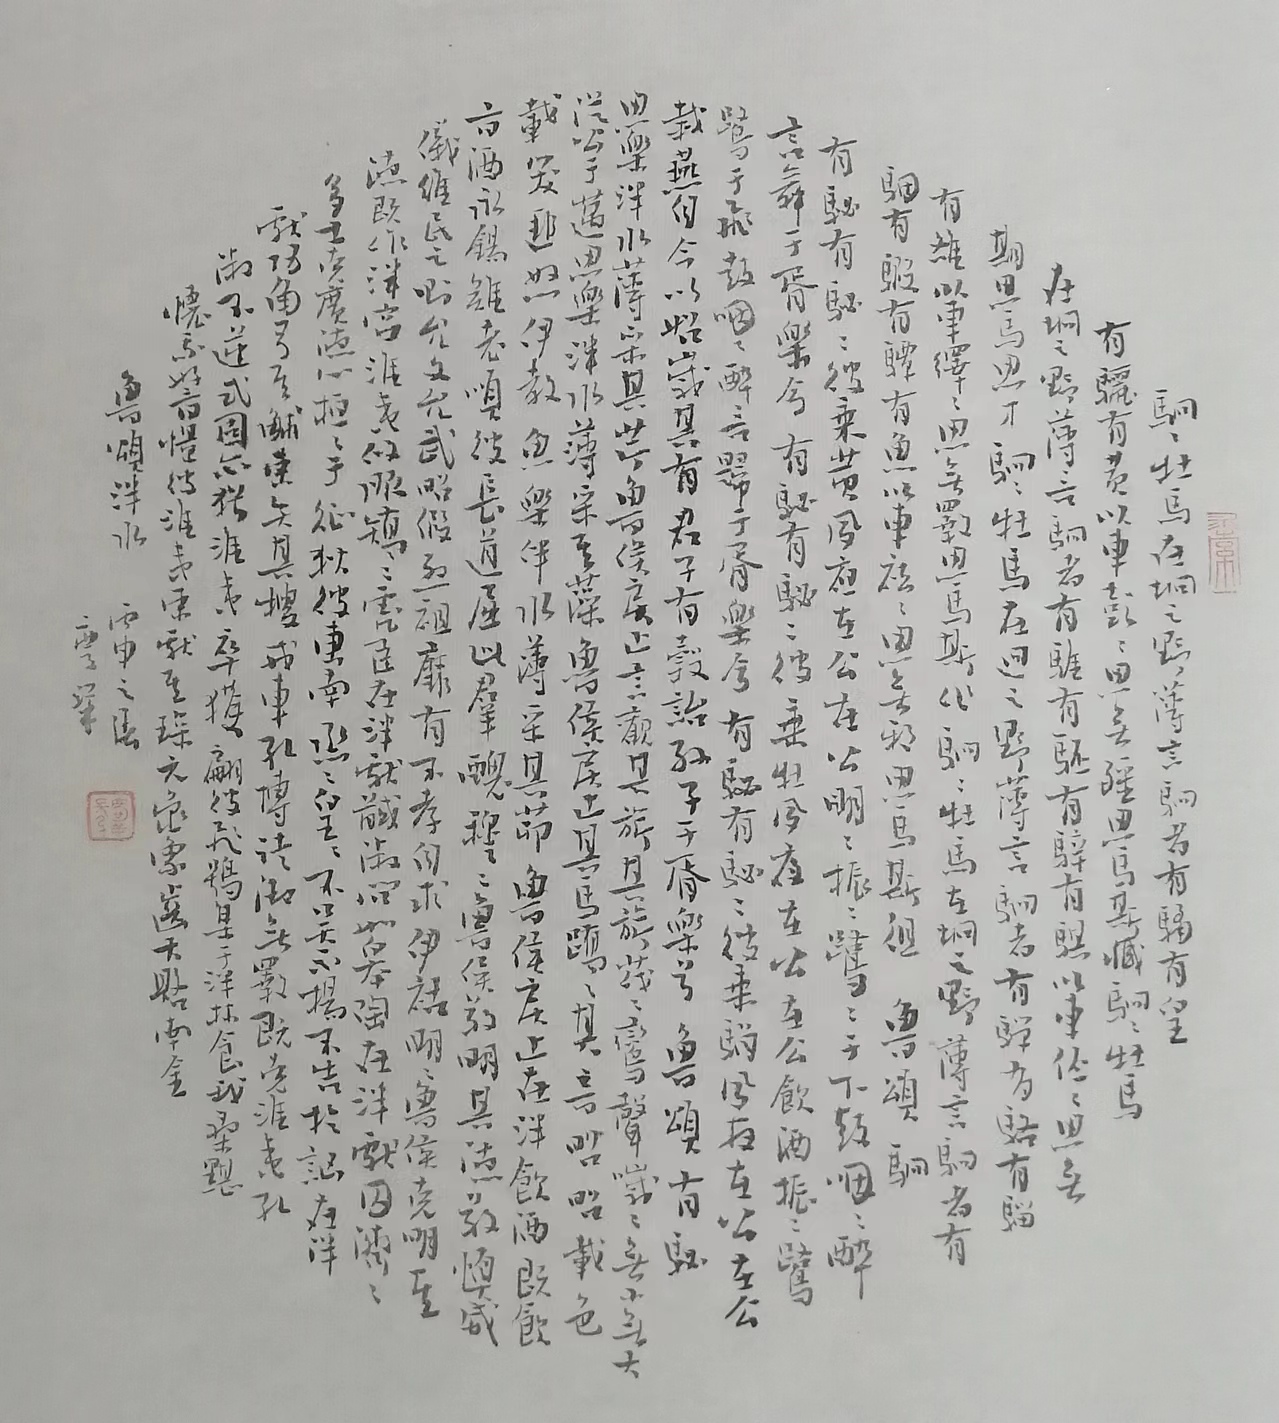 駉〻牡馬在坰之野薄言駉者有驈有皇
有驪有黃以車彭〻思無疆思馬斯臧駉〻牡馬
在坰之野薄言駉者有騅有駓有騂有騏以車伾〻思無
期思馬思才駉〻牡馬在坰之野薄言駉者有驒有駱有騮
有雒以車繹〻思無斁思馬斯作駉〻牡馬在坰之野薄言駉者有
駰有騢有驔有魚以車祛〻思無邪思馬斯徂 魯頌 駉
有駜有駜〻彼乘黃夙夜在公在公明〻振〻鷺〻于下鼓咽〻醉
言舞于胥樂兮 有駜有駜〻彼乘牡夙夜在公在公飲酒振〻鷺
鷺于飛鼓咽〻醉言歸于胥樂兮 有駜有駜〻彼乘駽夙夜在公在公
載燕自今以始歲其有君子有穀詒孫子于胥樂兮 魯頌 有駜
思樂泮水薄采其芹魯侯戾止言觀其旂其旂茷〻鸞聲噦〻無小無大
從公于邁思樂泮水薄采其藻魯侯戾止其馬蹻〻其音昭昭載色
載笑匪怒伊教 魚樂泮水薄采其茆 魯侯戾止在泮飲酒既飲
旨酒永錫難老順彼長道屈此羣醜穆〻魯侯敬明其德敬慎威
儀維民之則允文允武昭假烈祖靡有不孝自求伊祜明〻魯侯克明其
德既作泮宮淮夷攸服矯〻虎臣在泮獻馘淑問如皋陶在泮獻囚濟〻
多士克廣德心桓〻于征狄彼東南烝〻皇〻不吳不揚不告於訩在泮
獻功角弓其觩束矢其搜戎車孔博徒御無斁既克淮夷孔
淑不逆式固爾猶淮夷卒獲 翩彼飛鴞集于泮林食我桑黮
懷我好音憬彼淮夷來獻其琛元龜象齒大賂南金
魯頌泮水 丙申之春